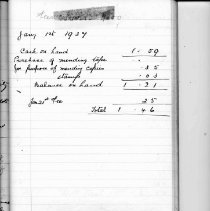 Jany 1st 1937
Cash on hand 1 . 09
Purchase of mending tape
for purpose of mending copies . 35
stamps . 03
Balance on hand 1 . 21
Jan 21st Fee 25
Total 1 . 46